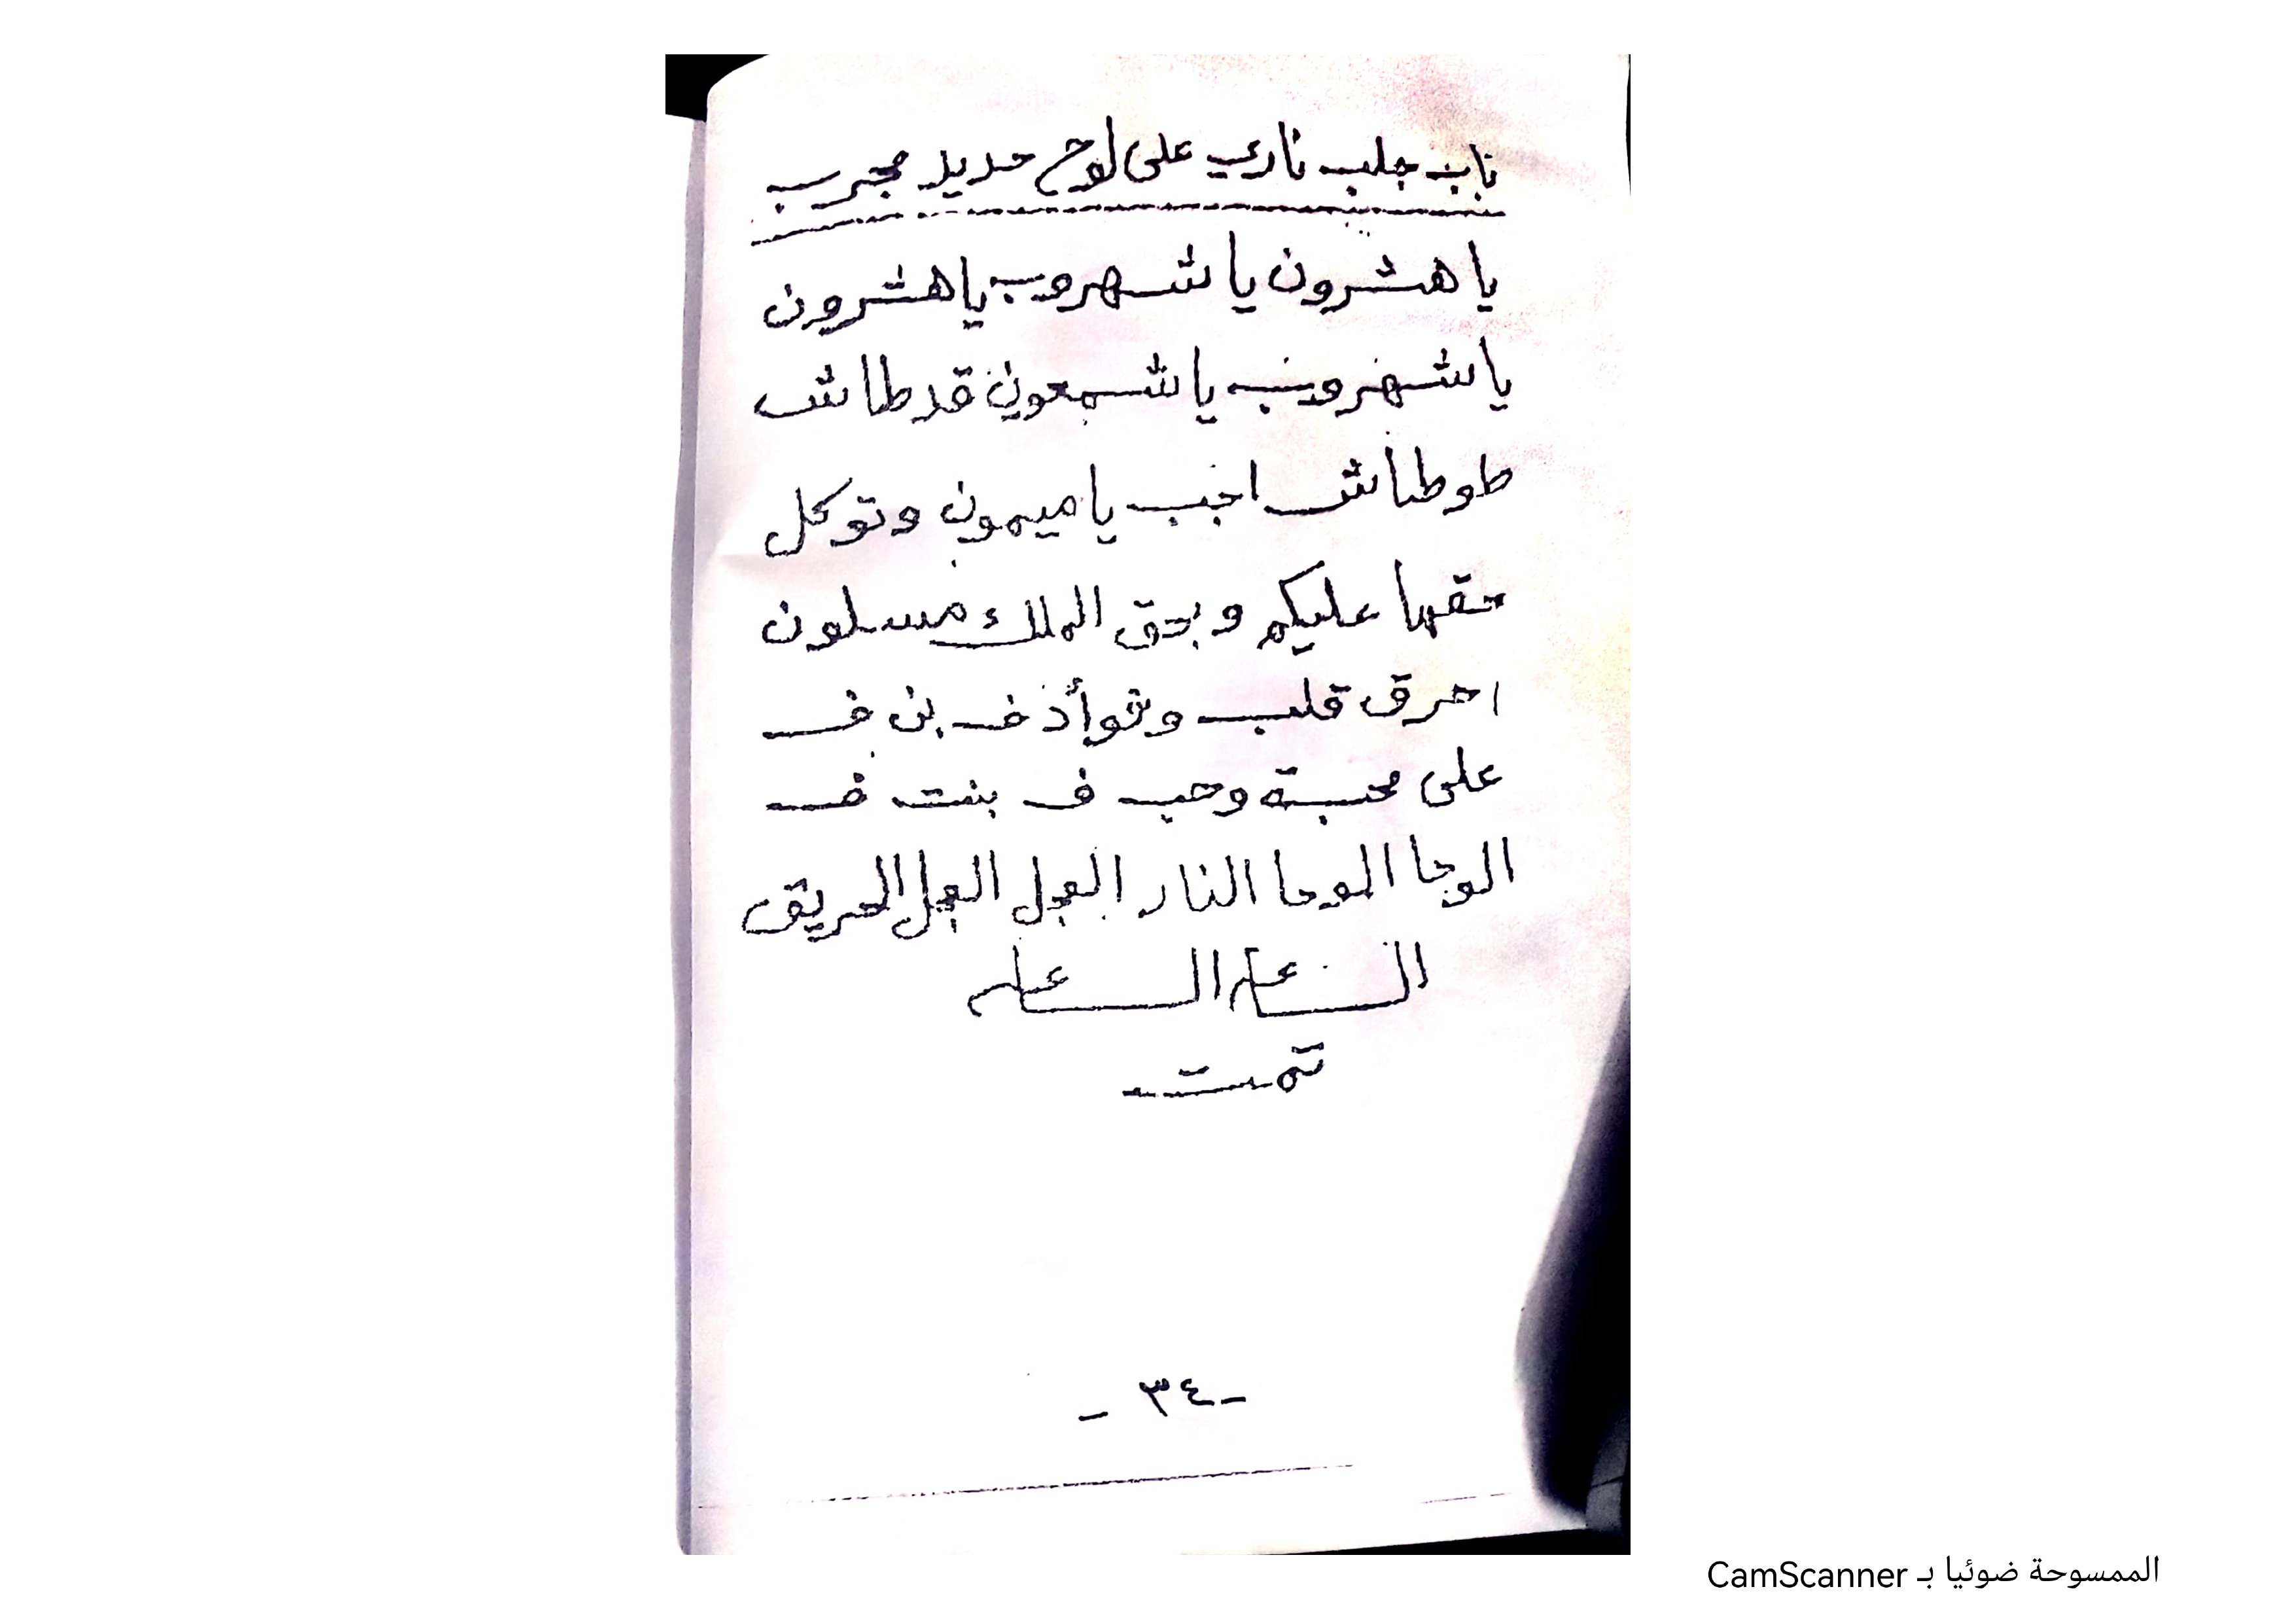 باب جلب ناري على لوح حديد مجرب
يا هشرون يا شهروب يا هشرون
يا شهروب يا شمعون قد طاش
طوطاش اجب يا ميمون وتوكل
حقها عليكم وبحق الملك مسلون
احرق قلب وفوأد ف بن ف
على محبة وحب ف بنت ف
الوحا الوحا النار العجل العجل الحريق
الساعه الساعه
تمت
- ٣٤ -
الممسوحة ضوئيا بـ CamScanner